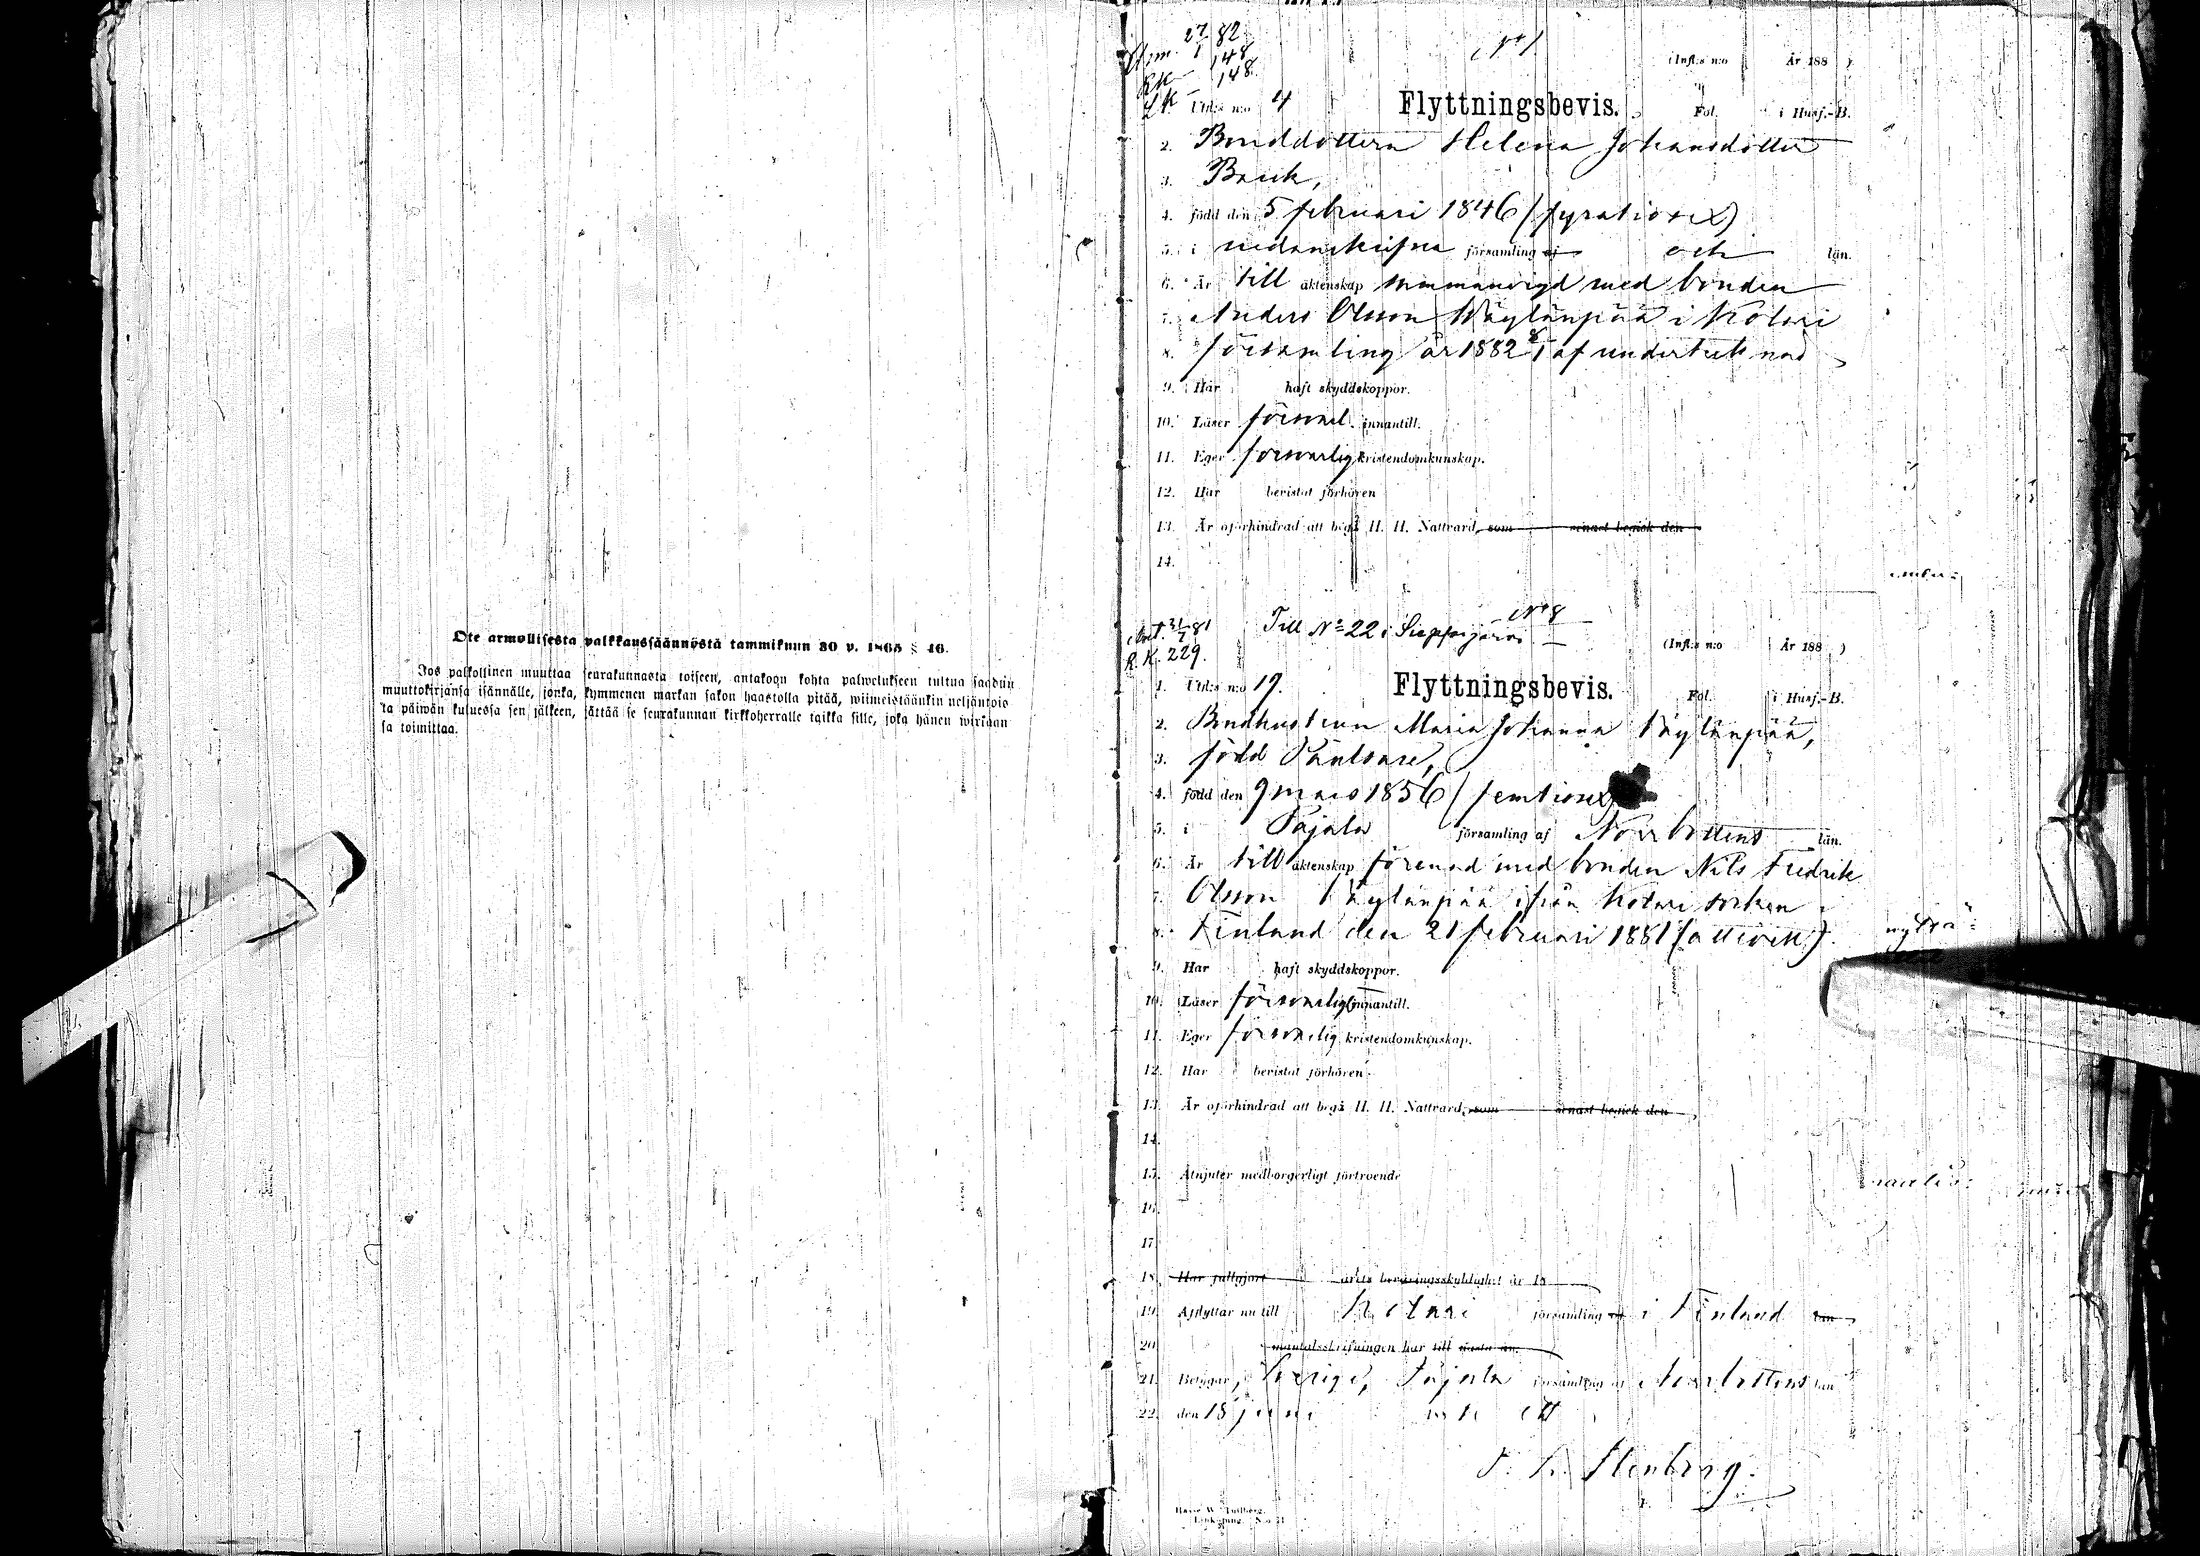 Ote armollisesta palkkaussäännöstä tammikuun 30 p. 1865 § 46.
Jos palkollinen muuttaa seurakunnasta toiseen, antakoon kohta palwelukseen tultua saadun
muuttokirjansa isännälle, jonka, kymmenen markan sakon haastolla pitää, wiimeistäänkin neljäntois
ta päiwän kuluessa sen jälkeen, jättää se seurakunnan kirkkoherralle taikka sille, joka hänen wirkaan
sa toimittaa.
27 82
1 148
RK 148
LK
№ 1
(Infl:s n:o År 188 )
Utfl:s n:o 4 Flyttningsbevis. Fol. i Husf.-B.
2. Bonddottern Helena Johansdotter
3. Bäck,
4. född den 5 februari 1846 (fyratiosex)
5. i nedanskrifne församling af och län.
6. Är till äktenskap sammanvigd med bonden
7. Anders Olsson Käylänpää i Kolari
8. församling år 1882 af undertecknad
9. Har haft skyddskoppor.
10. Läser försvarl. innantill.
11. Eger försvarlig kristendomkunskap.
12. Har bevistat förhören
13. Är oförhindrad att begå H. H. Nattvard, som senast begick den
14.
Ant. 31/7 81
R. K. 229.
Till № 22 i Sieppijärvi
№ 8
(Infl:s n:o År 188 )
1. Utfl:s n:o 19. Flyttningsbevis. Fol. i Husf.-B.
2. Bondhustrun Maria Johanna Käylänpää,
3. född
4. född den 9 mars 1856 (femtiosex)
5. i Pajala församling af Norrbottens län.
6. Är till äktenskap förenad med bonden Nils Fredrik
7. Olsson Käylänpää ifrån Kolari socken i
8. Finland den 21 februari 1881 (åttioett).
9. Har haft skyddskoppor.
10. Läser försvarlig innantill.
11. Eger försvarlig kristendomkunskap.
12. Har bevistat förhören
13. Är oförhindrad att begå H. H. Nattvard, som senast begick den
14.
15. Åtnjuter medborgerligt förtroende
16.
17.
18. Har fullgjort årets beväringsskyldighet år 18
19. Afflyttar nu till Kolari församling af i Finland län
20. mantalsskrifningen har till nästa år.
21. Betygar, Sverige, Pajala församling af Norrbottens län
22. den 18 juni ett
Stenborg.